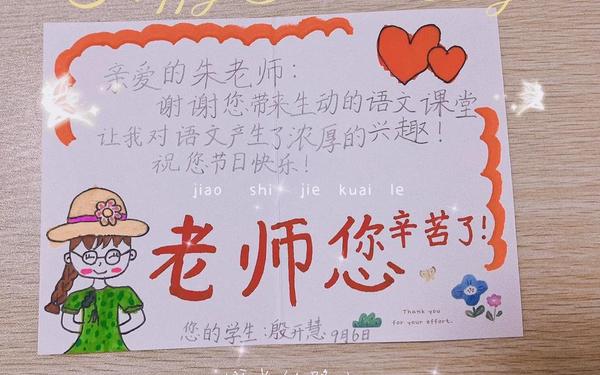 亲爱的朱老师：
谢谢您带来生动的语文课堂
让我对语文产生了浓厚的兴趣！
祝您节日快乐！
jiao shi jie kuai le
老师您辛苦了！
Thank you
for your effort.
您的学生：殷开慧
9月6日